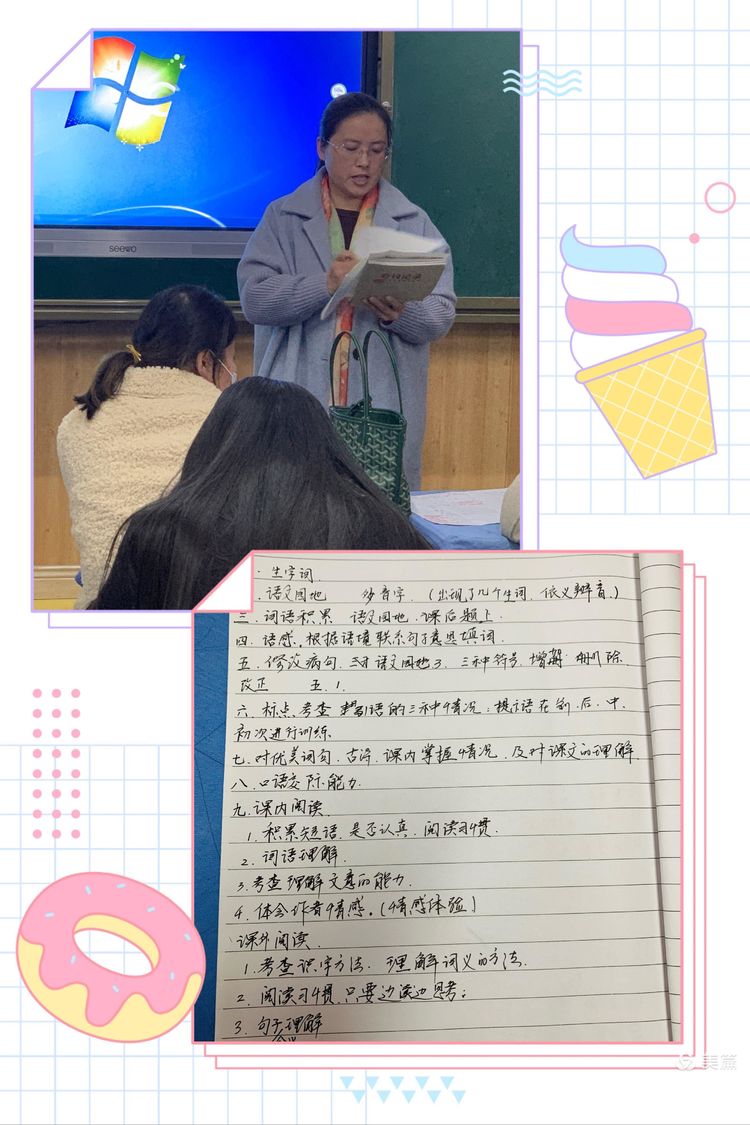 seewo
生字词.
语文园地 多音字.（出现了几个生词，依义辨音.）
三. 词语积累 语文园地. 课后题上.
四. 语感. 根据语境联系句子意思填词.
五. 修改病句. 语文园地3. 三种符号. 增添 删除
改正 五.1.
六. 标点. 考查 引语的三种情况. 提示语在前.后.中.
初次进行训练.
七. 对优美词句. 古诗. 课内掌握情况. 及对课文的理解
八. 口语交际能力.
九. 课内阅读.
1. 积累短语. 是否认真. 阅读习惯.
2. 词语理解.
3. 考查理解文意的能力.
4. 体会作者情感.（情感体验）
课外阅读.
1. 考查识字方法. 理解词义的方法.
2. 阅读习惯. 只要边读边思考；
3. 句子理解
美篇